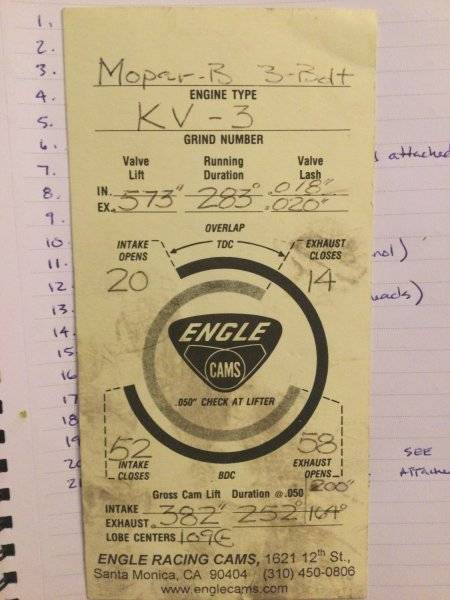 1.
2.
3.
4.
5.
6.
7.
8.
9.
10
11.
12.
13.
14.
15
16
17
18
19
20
21
attached
)
)
SEE
Mopar-B 3-Bolt
ENGINE TYPE
KV-3
GRIND NUMBER
Valve Lift Running Duration Valve Lash
IN. .018"
EX. .573" 283° .020"
OVERLAP
INTAKE OPENS TDC EXHAUST CLOSES
20 14
ENGLE
CAMS
.050" CHECK AT LIFTER
52 58
INTAKE CLOSES BDC EXHAUST OPENS
.200"
Gross Cam Lift Duration @ .050
INTAKE
EXHAUST .382" 252° 164°
LOBE CENTERS 109
ENGLE RACING CAMS, 1621 12th St.,
Santa Monica, CA 90404 (310) 450-0806
www.englecams.com